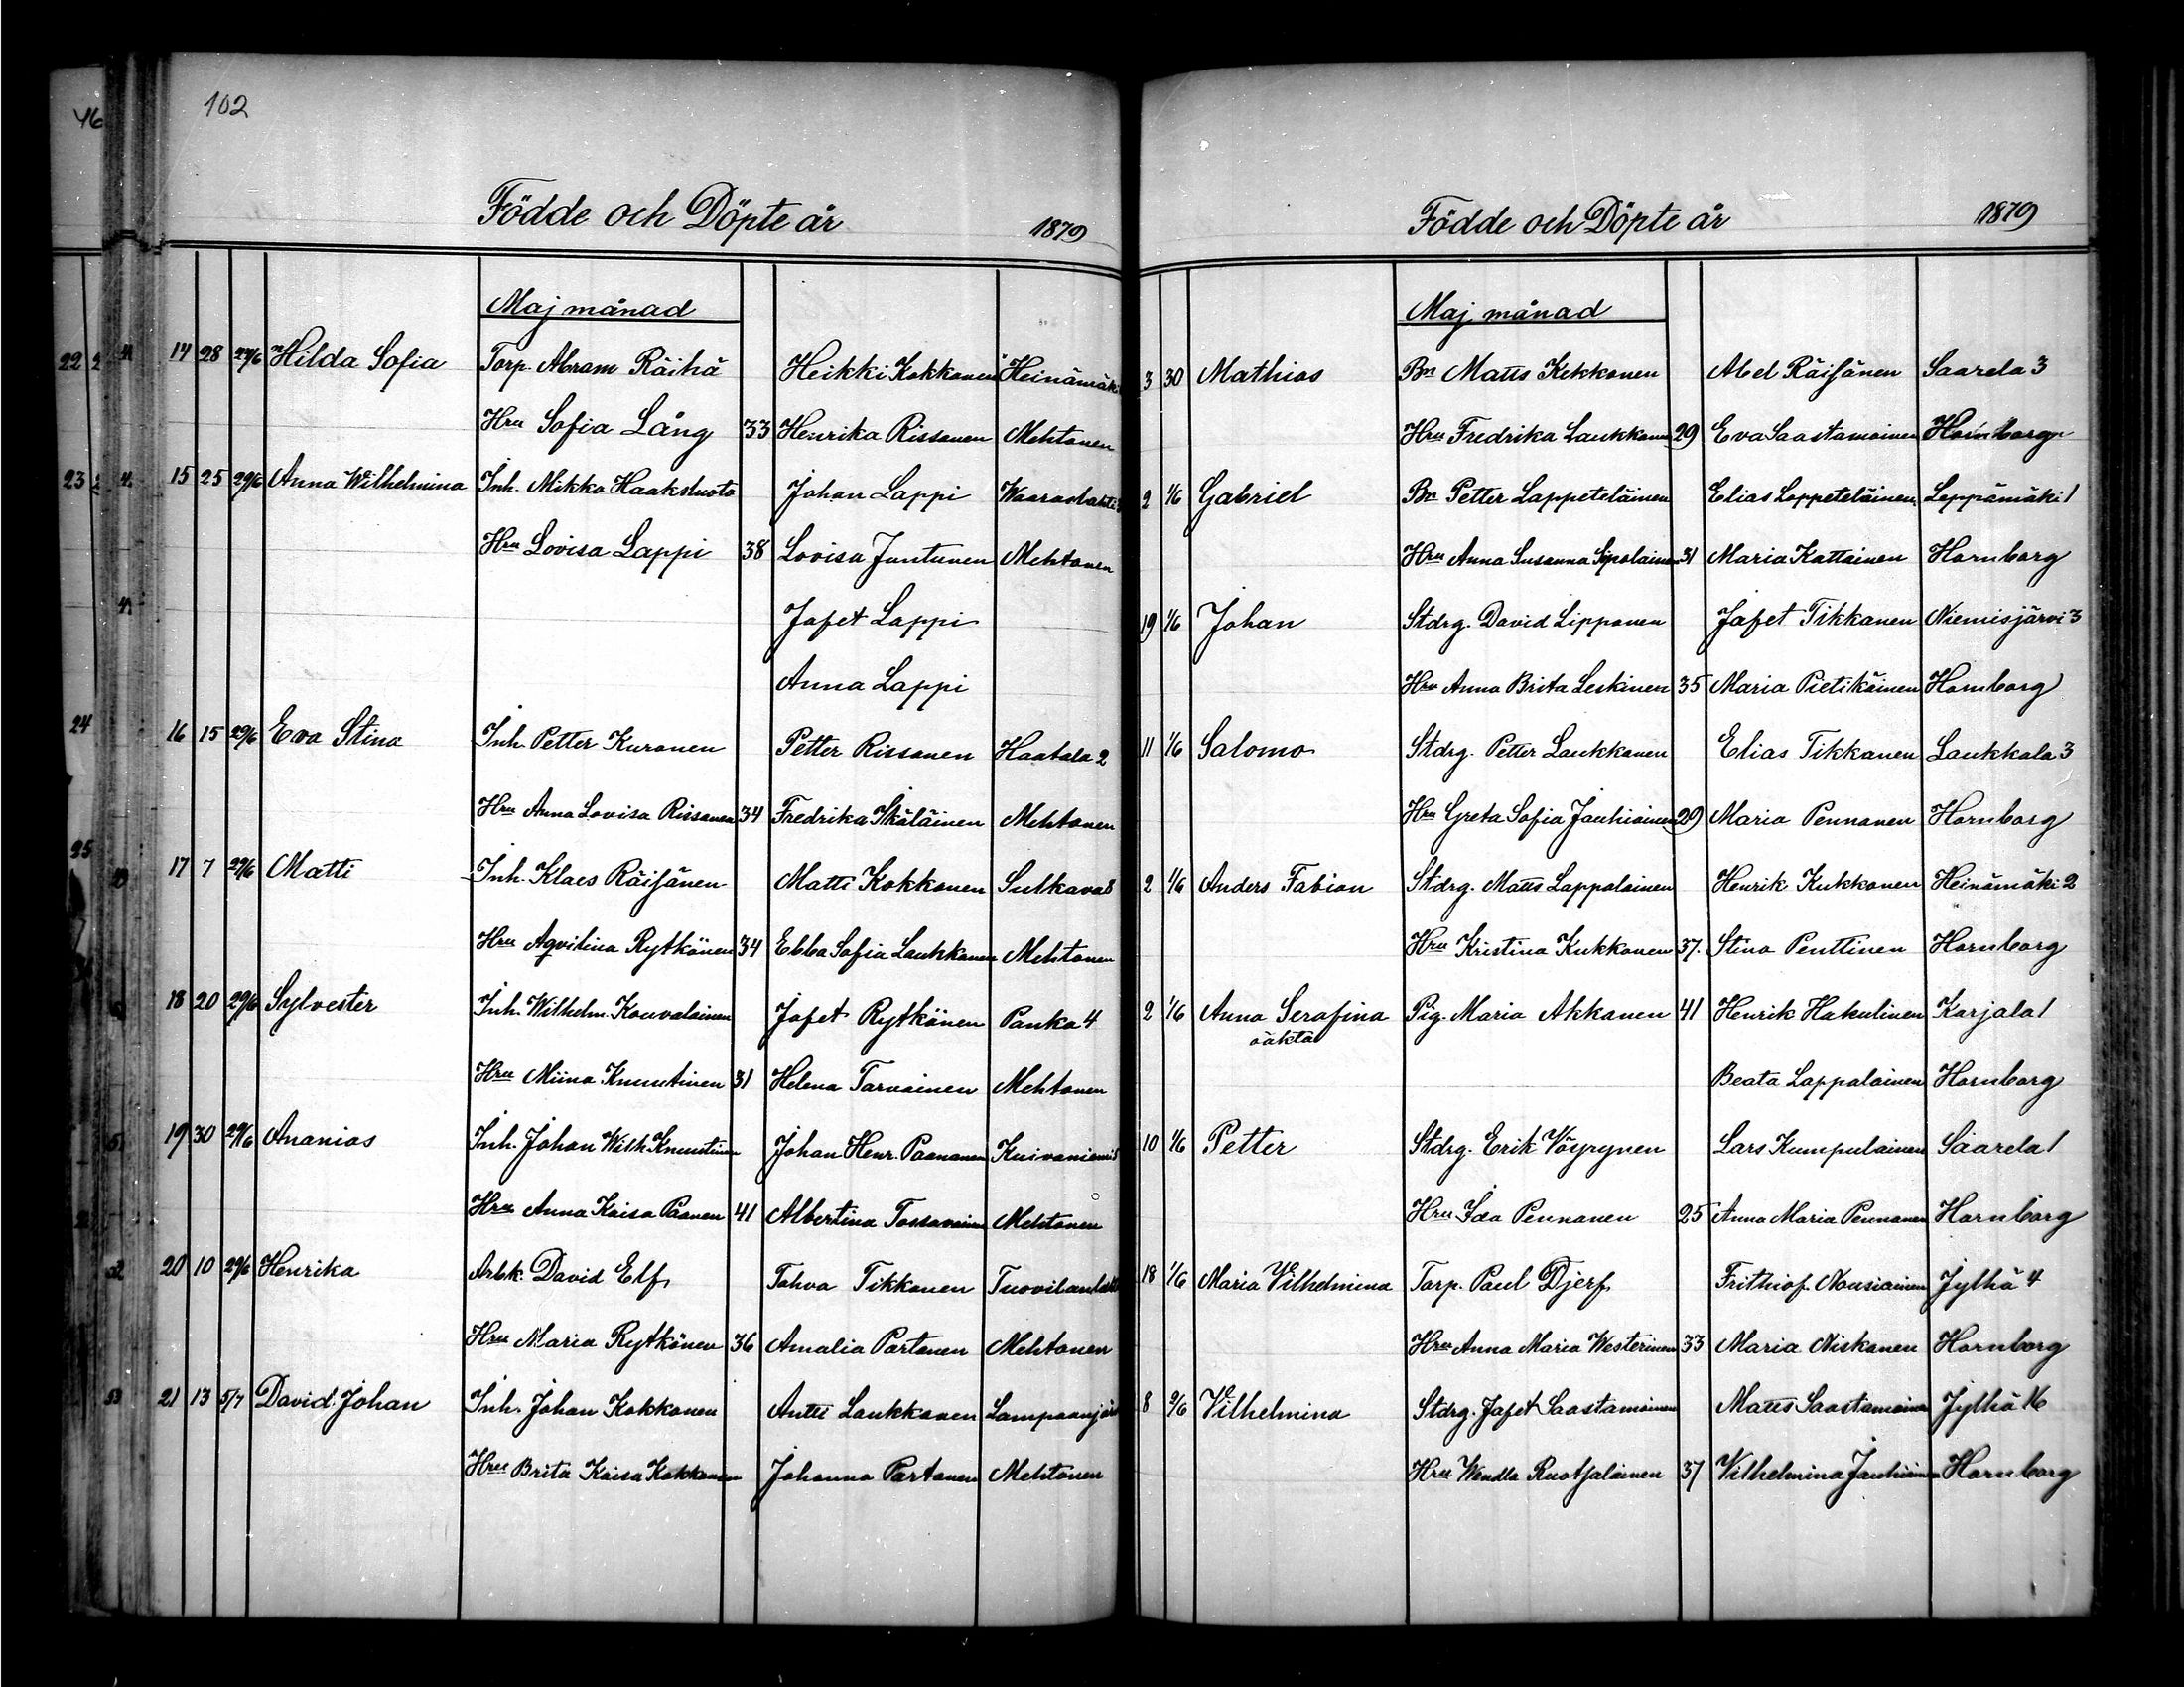 46
102
Födde och Döpte år 1879
Maj månad
14 28 24/6 Hilda Sofia Torp. Abram Räihä Heikki Kokkonen Heinämäki
Hru Sofia Lång 33 Henrika Rissanen Mehtonen
15 25 29/6 Anna Wilhelmina Inh. Mikko Haaksluoto Johan Lappi
Hru Lovisa Lappi 38 Lovisa Juntunen Mehtonen
Jafet Lappi
Anna Lappi
16 15 29/6 Eva Stina Inh. Petter Kuronen Petter Rissanen Haatala 2
Hru Anna Lovisa Rissanen 34 Fredrika Mehtonen
17 7 29/6 Matti Inh. Klaes Räisänen Matti Kokkonen Sulkava 8
Hru Aqvilina Rytkönen 34 Ebba Sofia Laukkanen Mehtonen
18 20 29/6 Sylvester Inh. Wilhelm Kouvalainen Jafet Rytkönen Panka 4
Hru Miina Knuutinen 31 Helena Tarvainen Mehtonen
19 30 29/6 Ananias Inh. Johan Wilh. Knuutinen Johan Henr. Paananen Kuivaniemi
Hru Anna Kaisa Paanen 41 Albertina Tossavainen Mehtonen
20 10 29/6 Henrika Arbk. David Elf Tahva Tikkanen
Hru Maria Rytkönen 36 Amalia Partanen Mehtonen
21 13 5/7 David Johan Inh. Johan Kokkonen Antti Laukkanen
Hru Brita Kaisa Kokkonen Johanna Partanen Mehtonen
Födde och Döpte år 1879
Maj månad
3 30 Mathias Bn Matts Kekkonen Abel Räisänen Saarela 3
Hru Fredrika Laukkanen 29 Eva Saastamoinen Hornborg
2 1/6 Gabriel Bn Petter Lappeteläinen Elias Lappeteläinen Leppämäki 1
Hru Anna Susanna Sipolainen 31 Maria Kattainen Hornborg
19 1/6 Johan Stdrg. David Lipponen Jafet Tikkanen Niemisjärvi 3
Hru Anna Brita Leskinen 35 Maria Pietikäinen Hornborg
11 1/6 Salomo Stdrg. Petter Laukkanen Elias Tikkanen Laukkala 3
Hru Greta Sofia Jauhiainen 29 Maria Pennanen Hornborg
2 1/6 Anders Fabian Stdrg. Matts Lappalainen Henrik Kukkonen Heinämäki 2
Hru Kristina Kukkonen 37. Stina Penttinen Hornborg
2 1/6 Anna Serafina Pig. Maria Akkanen 41 Henrik Hakulinen Karjala 1
oäkta
Beata Lappalainen Hornborg
10 1/6 Petter Stdrg. Erik Väyrynen Lars Kumpulainen Saarela 1
Hru Ida Pennanen 25 Anna Maria Pennanen Hornborg
18 1/6 Maria Vilhelmina Torp. Paul Djerf Frithiof Nousiainen Jylhä 4
Hru Anna Maria Westerinen 33 Maria Niskanen Hornborg
8 9/6 Vilhelmina Stdrg. Jafet Saastamoinen Matts Saastamoinen Jylhä 16
Hru Wendla Ruotsalainen 37 Vilhelmina Jauhiainen Hornborg